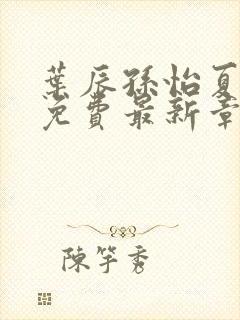 葉辰孫怡夏
免費最新章
陳竽秀